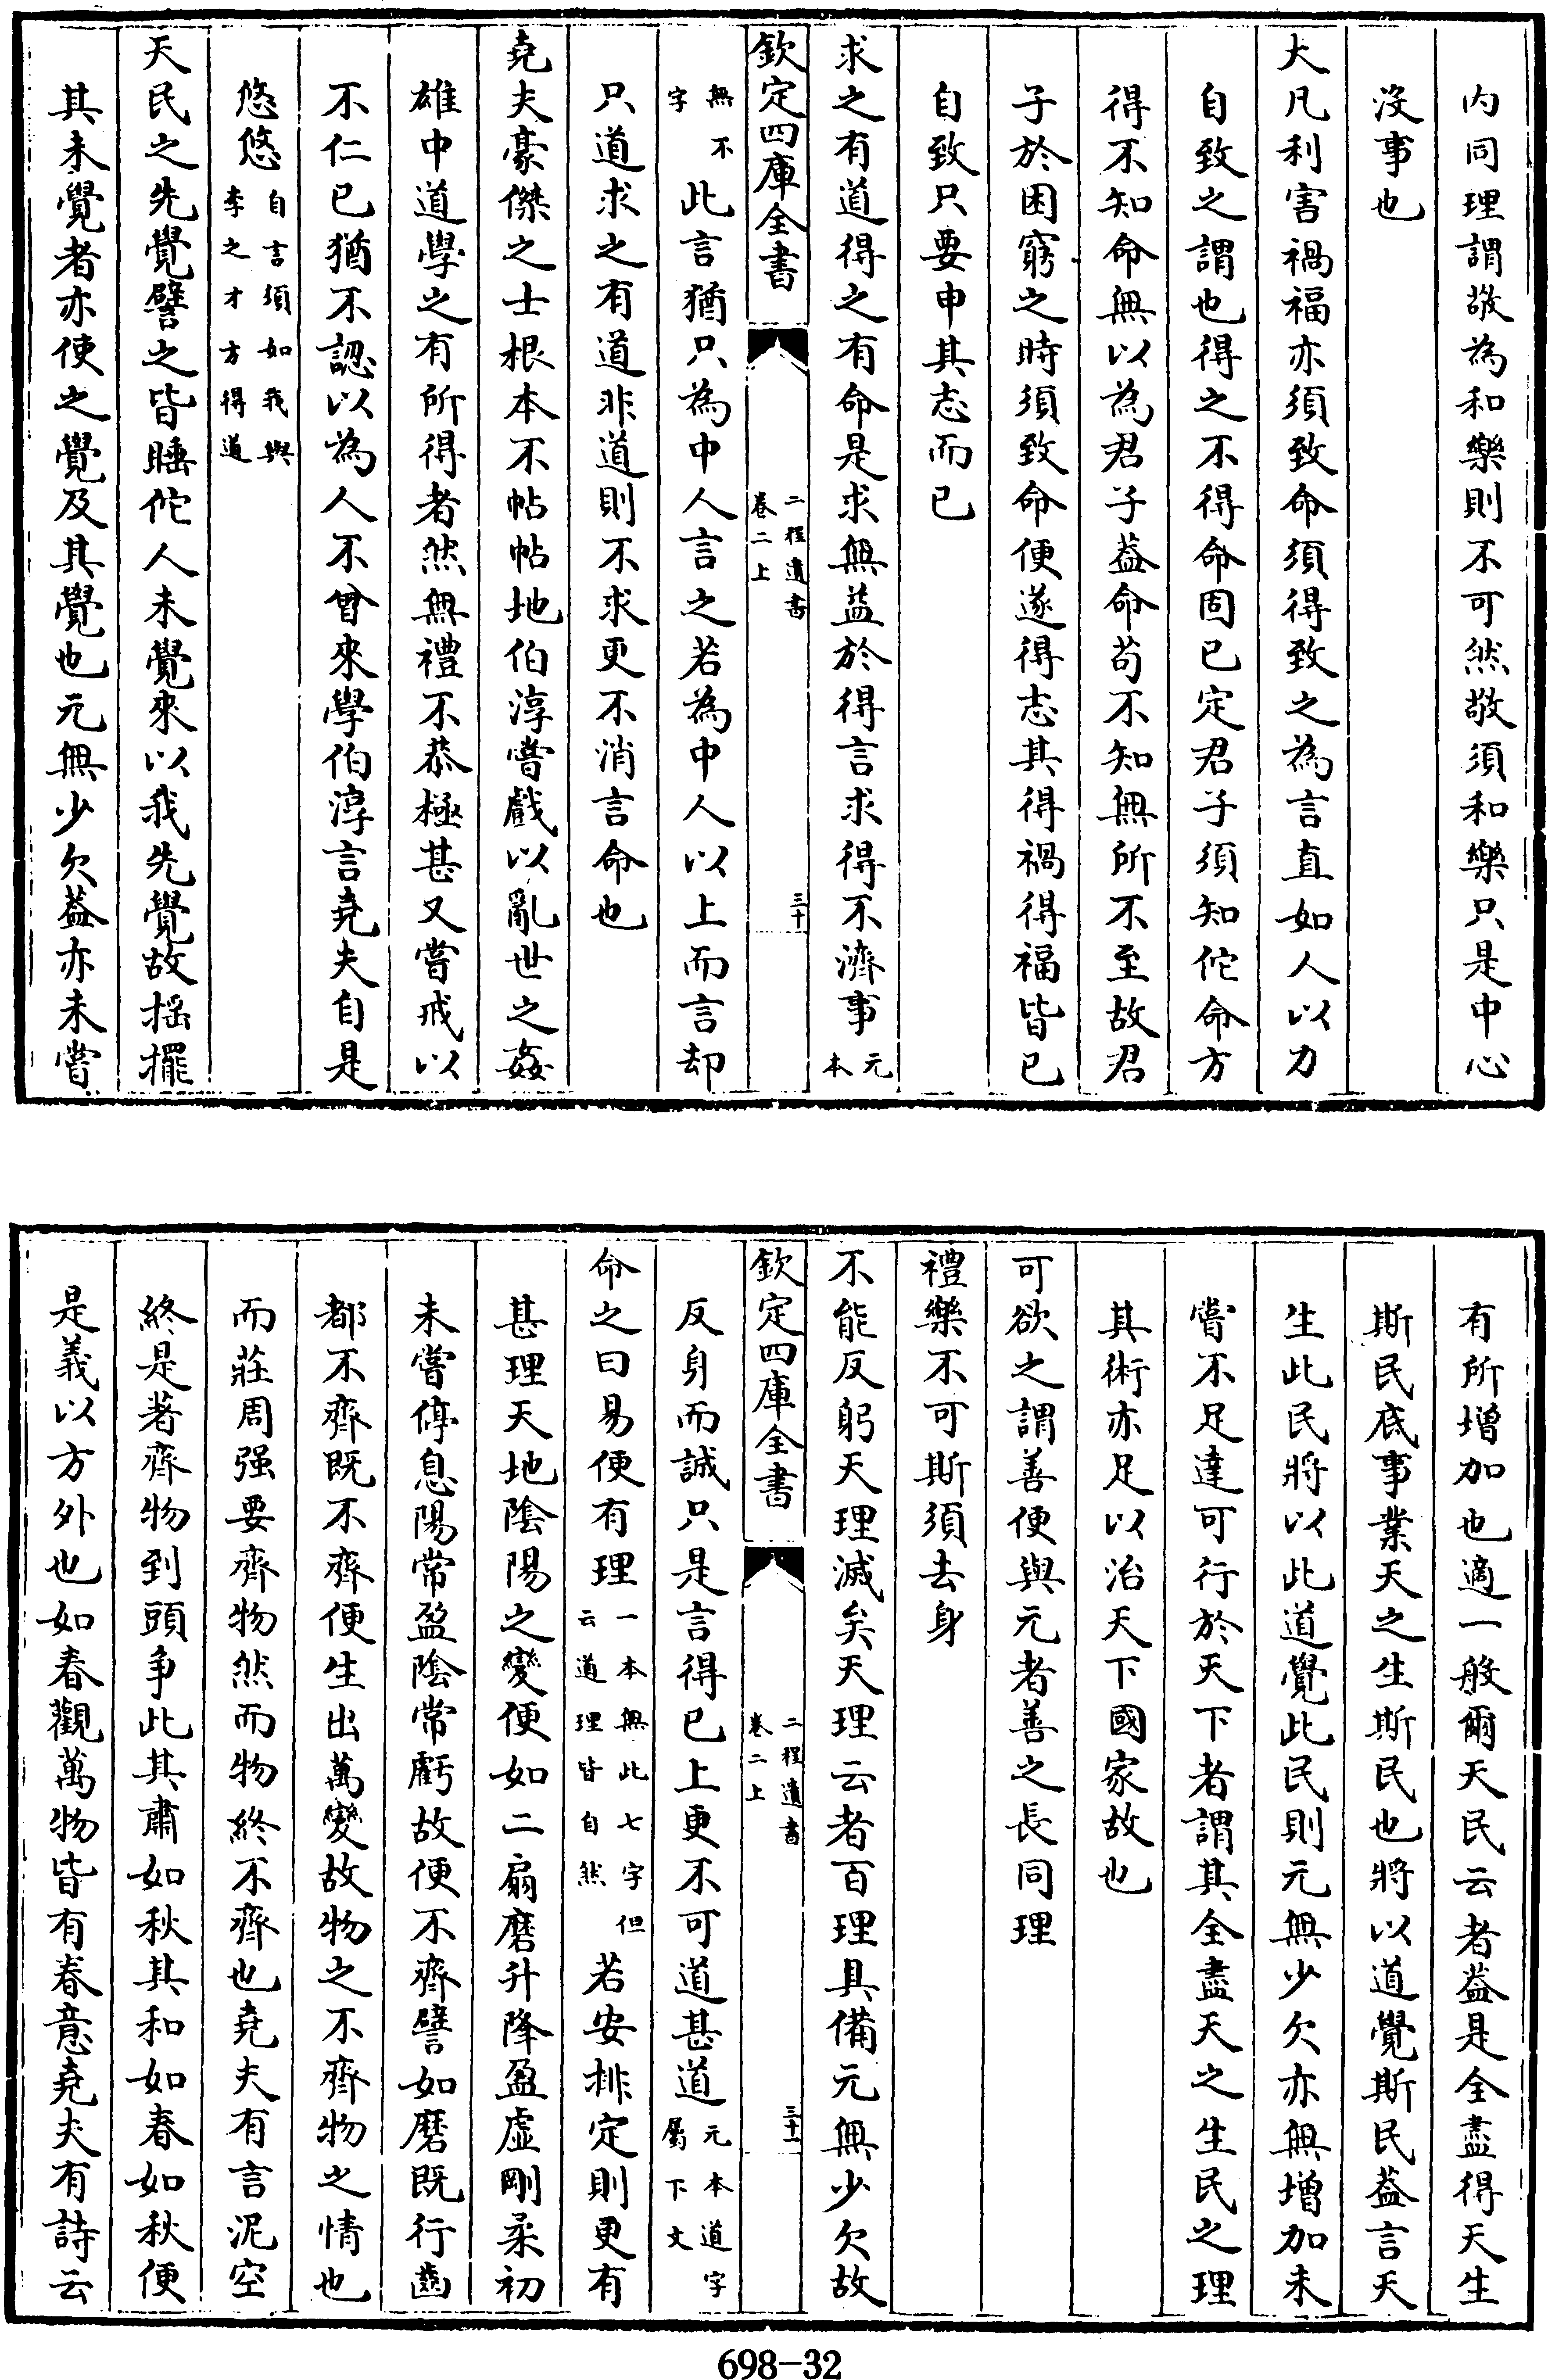 内同理謂敬為和樂則不可然敬須和樂只是中心
没事也
大凡利害禍福亦須致命須得致之為言直如人以力
自致之謂也得之不得命固已定君子須知佗命方
得不知命無以為君子葢命苟不知無所不至故君
子於困窮之時須致命便遂得志其得禍得福皆已
自致只要申其志而已
求之有道得之有命是求無益於得言求得不濟事元
本
欽定四庫全書
二程遺書
卷二上
三十
無不
字
此言猶只為中人言之若為中人以上而言却
只道求之有道非道則不求更不消言命也
堯夫豪傑之士根本不帖帖地伯淳嘗戲以亂世之姦
雄中道學之有所得者然無禮不恭極甚又嘗戒以
不仁已猶不認以為人不曾來學伯淳言堯夫自是
悠悠
自言須如我與
李之才方得道
天民之先覺譬之皆睡佗人未覺來以我先覺故摇擺
其未覺者亦使之覺及其覺也元無少欠葢亦未嘗
有所增加也適一般爾天民云者葢是全盡得天生
斯民底事業天之生斯民也將以道覺斯民葢言天
生此民將以此道覺此民則元無少欠亦無增加未
嘗不足達可行於天下者謂其全盡天之生民之理
其術亦足以治天下國家故也
可欲之謂善便與元者善之長同理
禮樂不可斯須去身
不能反躬天理滅矣天理云者百理具備元無少欠故
欽定四庫全書
二程遺書
卷二上
三十一
反身而誠只是言得已上更不可道甚道
元本道字
屬下文
命之曰易便有理
一本無此七字但
云道理皆自然
若安排定則更有
甚理天地陰陽之變便如二扇磨升降盈虚剛柔初
未嘗停息陽常盈陰常虧故便不齊譬如磨既行齒
都不齊既不齊便生出萬變故物之不齊物之情也
而莊周强要齊物然而物終不齊也堯夫有言泥空
終是著齊物到頭争此其肅如秋其和如春如秋便
是義以方外也如春觀萬物皆有春意堯夫有詩云
698-32